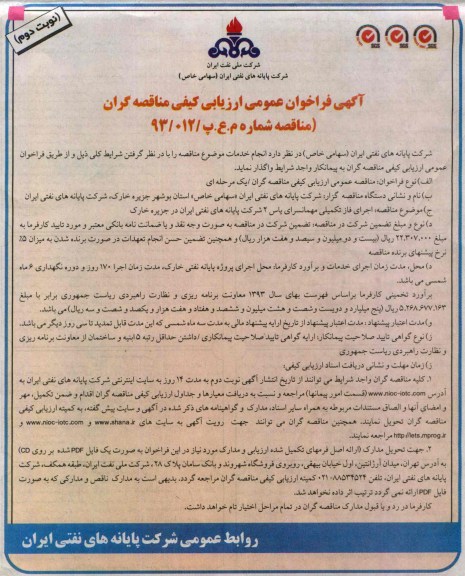 (نوبت دوم)
شرکت ملی نفت ایران
شرکت پایانه های نفتی ایران (سهامی خاص)
آگهی فراخوان عمومی ارزیابی کیفی مناقصه گران
(مناقصه شماره م.ع.پ/۹۳/۰۱۲
شرکت پایانه های نفتی ایران (سهامی خاص) در نظر دارد انجام خدمات موضوع مناقصه را با در نظر گرفتن شرایط کلی ذیل و از طریق فراخوان
عمومی ارزیابی کیفی مناقصه گران به پیمانکار واجد شرایط واگذار نماید.
الف) نوع فراخوان: مناقصه عمومی ارزیابی کیفی مناقصه گران /یک مرحله ای
ب) نام و نشانی دستگاه مناقصه گزار: شرکت پایانه های نفتی ایران «سهامی خاص» استان بوشهر جزیره خارک، شرکت پایانه های نفتی ایران
ج) موضوع مناقصه: اجرای فاز تکمیلی مهمانسرای یاس ۲ شرکت پایانه های نفتی ایران در جزیره خارک
د) نوع و مبلغ تضمین شرکت در مناقصه: تضمین شرکت در مناقصه به صورت وجه نقد و یا ضمانت نامه بانکی معتبر و مورد تایید کارفرما به
مبلغ ۲۲,۳۰۷,۰۰۰ ریال (بیست و دو میلیون و سیصد و هفت هزار ریال) و همچنین تضمین حسن انجام تعهدات در صورت برنده شدن به میزان ۵٪
نرخ پیشنهای برنده مناقصه
د) محل، مدت زمان اجرای خدمات و برآورد کارفرما: محل اجرای پروژه پایانه نفتی خارک، مدت زمان اجرا ۱۷۰ روز و دوره نگهداری ۶ ماه
شمسی می باشد.
برآورد تخمینی کارفرما براساس فهرست بهای سال ۱۳۹۳ معاونت برنامه ریزی و نظارت راهبردی ریاست جمهوری برابر با مبلغ
۵,۲۶۸,۶۷۷,۱۶۳ ریال (پنج میلیارد و دویست وشصت و هشت میلیون و ششصد و هفتاد و هفت هزار و یکصد و شصت و سه ریال) می باشد.
و) مدت اعتبار پیشنهاد: مدت اعتبار پیشنهاد از تاریخ ارایه پیشنهاد مالی به مدت سه ماه شمسی که این مدت قابل تمدید تا سی روز دیگر می باشد.
ز) نوع گواهی تایید صلاحیت پیمانکار: ارایه گواهی تایید صلاحیت پیمانکاری /داشتن حداقل رتبه ۵ ابنیه و ساختمان از معاونت برنامه ریزی
و نظارت راهبردی ریاست جمهوری
ز) زمان مهلت و نشانی دریافت اسناد ارزیابی کیفی:
۱. کلیه مناقصه گران واجد شرایط می توانند از تاریخ انتشار آگهی نوبت دوم به مدت ۱۴ روز به سایت اینترنتی شرکت پایانه های نفتی ایران به
آدرس www.nioc-iotc.com (قسمت امور پیمانها) مراجعه و نسبت به دریافت معیارها و جداول ارزیابی کیفی مناقصه گران اقدام و ضمن تکمیل، مهر
و امضای آنها و الصاق مستندات مربوطه به همراه سایر اسناد، مدارک و گواهینامه های ذکر شده در آگهی و سایت پیش گفته، به کمیته ارزیابی کیفی
مناقصه گران تحویل نمایند. همچنین مناقصه گران می توانند جهت رویت آگهی به سایت های www.shana.ir و www.nioc-iotc.com و
http://iets.mporg.ir مراجعه نمایند.
۲. جهت تحویل مدارک (ارائه اصل فرمهای تکمیل شده ارزیابی و مدارک مورد نیاز در این فراخوان به صورت یک فایل PDF شده بر روی CD)
به آدرس تهران، میدان آرژانتین، اول خیابان بیهقی، روبروی فروشگاه شهروند و بانک سامان پلاک ۲۸، شرکت ملی نفت ایران، طبقه همکف، شرکت
پایانه های نفتی ایران، تلفن ۸۸۵۳۴۵۲۴-۰۲۱ کمیته ارزیابی کیفی مناقصه گران مراجعه گردد. بدیهی است به مدارک ناقص و مدارکی که به صورت
فایل PDF ارائه نمی گردد ترتیب اثر داده نخواهد شد.
کارفرما در رد و یا قبول مدارک مناقصه گران در تمام مراحل اختیار تام خواهد داشت.
روابط عمومی شرکت پایانه های نفتی ایران